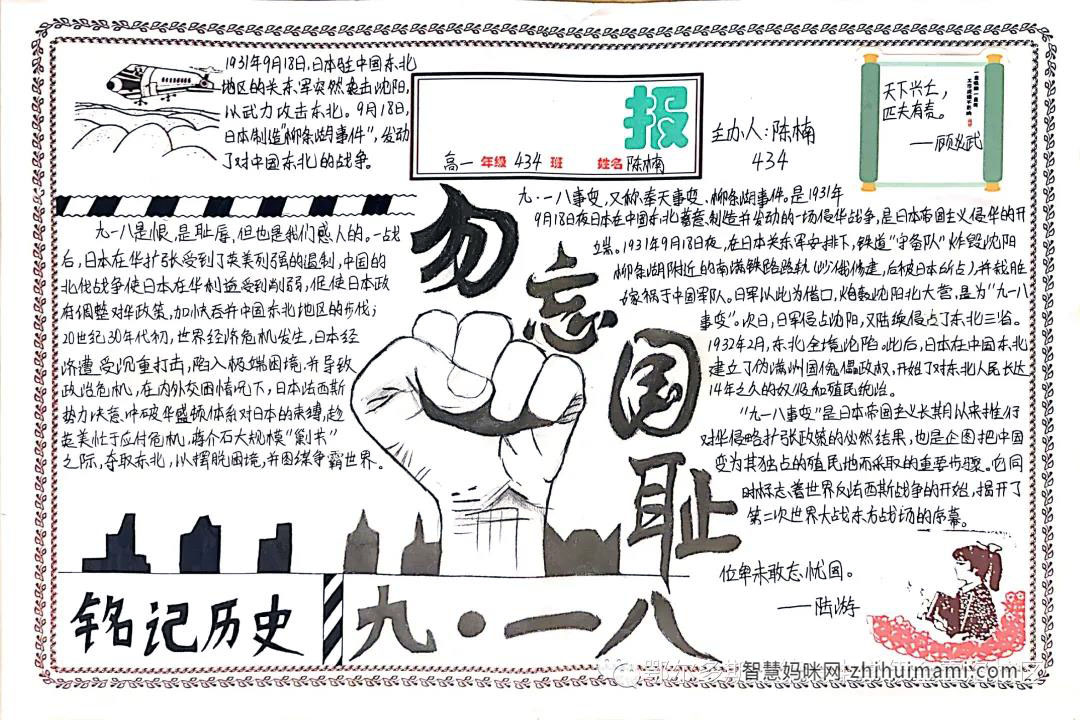 1931年9月18日,日本驻中国东北
地区的关东军突然袭击沈阳,
以武力攻击东北。9月18日,
日本制造"柳条湖事件",发动
了对中国东北的战争。
报
高一 年级 434 班 姓名 陈楠
主办人:陈楠
434
天下兴亡,
匹夫有责。
——顾炎武
九一八是恨,是耻辱,但也是我们感人的。一战
后,日本在华扩张受到了英美列强的遏制,中国的
北伐战争使日本在华利益受到削弱,促使日本政
府调整对华政策,加快吞并中国东北地区的步伐;
20世纪30年代初,世界经济危机发生,日本经
济遭受沉重打击,陷入极端困境.并导致
政治危机,在内外交困情况下,日本法西斯
势力决意冲破华盛顿体系对日本的束缚,趁
英美忙于应付危机,蒋介石大规模"剿共"
之际,夺取东北,以摆脱困境,并图谋争霸世界.
勿忘国耻
九·一八事变,又称奉天事变、柳条湖事件。是1931年
9月18日夜日本在中国东北蓄意制造并发动的一场侵华战争,是日本帝国主义侵华的开
端。1931年9月18日夜,在日本关东军安排下,铁道"守备队"炸毁沈阳
柳条湖附近的南满铁路路轨(沙俄修建,后被日本所占),并栽赃
嫁祸于中国军队。日军以此为借口,炮轰沈阳北大营,是为"九一八
事变"。次日,日军侵占沈阳,又陆续侵占了东北三省。
1932年2月,东北全境沦陷.此后,日本在中国东北
建立了伪满洲国傀儡政权,开始了对东北人民长达
14年之久的奴役和殖民统治。
"九一八事变"是日本帝国主义长期以来推行
对华侵略扩张政策的必然结果,也是企图把中国
变为其独占的殖民地而采取的重要步骤。它同
时标志着世界反法西斯战争的开始,揭开了
第二次世界大战东方战场的序幕。
位卑未敢忘忧国。
——陆游
铭记历史
九·一八
智慧妈咪网 zhihuimami.com